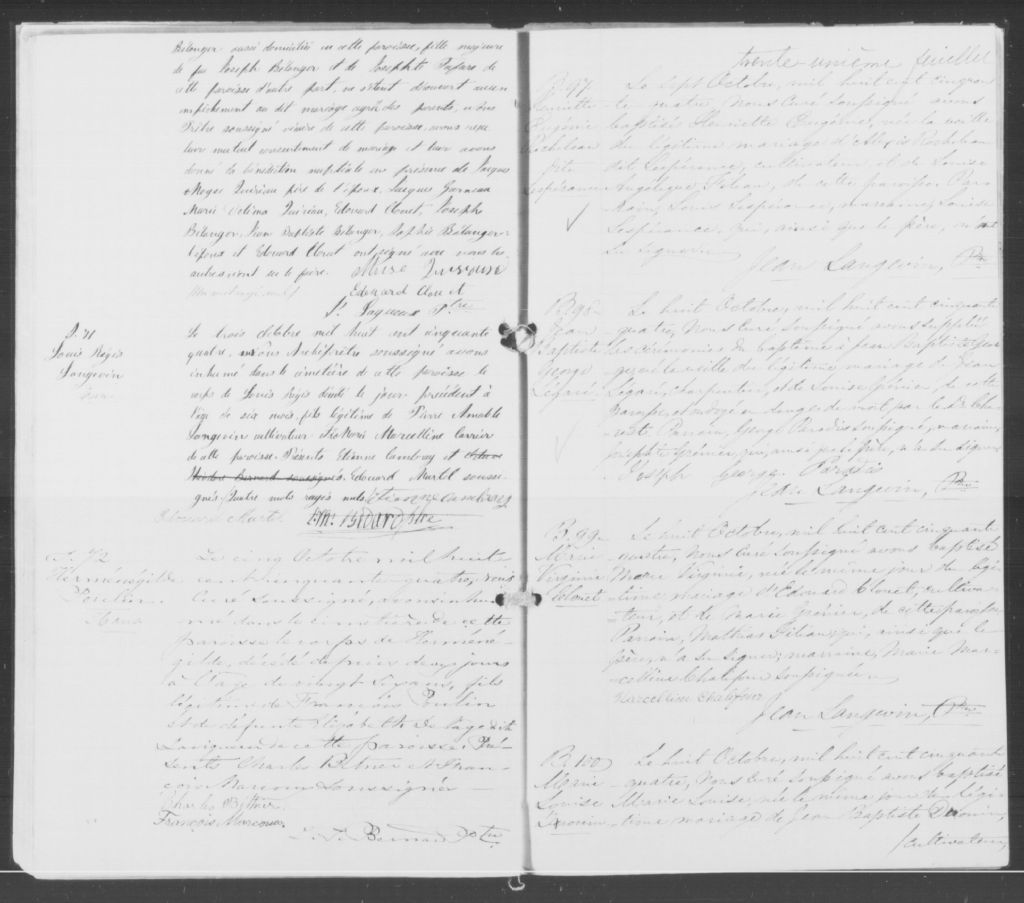 Bélanger aussi domiciliée en cette paroisse, fille majeure
de feu Joseph Bélanger et de Josephte
cette paroisse d'autre part, ne s'étant découvert aucun
empêchement au dit mariage agréé des parents, nous
Prêtre soussigné vicaire de cette paroisse, avons reçu
leur mutuel consentement de mariage et leur avons
donné la bénédiction nuptiale en présence de Jacques
père de l'époux, Jacques
Marie Edouard Clouet, Joseph
Bélanger, Jean Baptiste Bélanger, Sophie Bélanger
L'époux et Edouard Clouet ont signé avec nous les
autres non le père.
Edouard Clouet
Ptre
S. 71
Louis Régis
Langevin
Le trois Octobre mil huit cent cinquante
quatre, Nous Archiprêtre soussigné avons
inhumé dans le cimetière de cette paroisse le
corps de Louis Régis décédé le jour précédent à
l'âge de six mois, fils légitime de Pierre Amable
Langevin cultivateur et de Marie Marcelline Carrier
de cette paroisse. Présents Etienne Cambray et
Bernard soussignés Edouard Martel soussi-
gnés. Quatre mots rayés nuls. Etienne Cambray
Edouard Martel Ptre
S. 72
Herménégilde
Poulin
Le cinq Octobre mil huit
cent cinquante-quatre, nous
Curé soussigné, avons inhu-
mé dans le cimetière de cette
paroisse le corps de Herméné-
gilde, décédé depuis deux jours
à l'age de vingt ans, fils
légitime de François Poulin
et de défunte Elizabeth
de cette paroisse. Pré-
sents Charles Bittner et Fran-
çois Marcoux soussignés
Charles Bittner
François Marcoux
Bernard Ptre
trente-unième feuillet
B. 97.
Henriette
Eugénie
Rocheleau
dite
Lespérance
Le sept Octobre, mil huit cent cinquan-
te quatre, Nous Curé soussigné avons
baptisé Henriette Eugénie, née la veille
du légitime mariage d'Alexis Rocheleau
dit Lespérance, cultivateur, et de Louise
Angélique de cette paroisse. Par-
rain, Louis Lespérance, marraine, Louise
Lespérance, qui, ainsi que le père, n'ont
su signer.
Jean Langevin, Ptre
B. 98.
Jean
Baptiste
George
Légaré
Le huit Octobre, mil huit cent cinquante
quatre, Nous Curé soussigné avons suppléé
les cérémonies du baptême à Jean Baptiste
George né la veille du légitime mariage de Jean
Légaré, charpentier, et de Louise Grenier, de cette
paroisse, et ondoyé en danger de mort par le Dr.
Parrain, George Paradis soussigné, marraine,
qui, ainsi que le père, n'a su signer.
Joseph George Paradis
Jean Langevin, Ptre
B. 99.
Marie
Virginie
Clouet
Le huit Octobre, mil huit cent cinquante
quatre, Nous Curé soussigné avons baptisé
Marie Virginie, née le même jour du légi-
time mariage d'Edouard Clouet, cultiva-
teur, et de Marie Grenier, de cette paroisse.
Parrain, Mathias qui, ainsi que le
père, n'a su signer; marraine, Marie Mar-
celline Chalifour soussignée.
Marcelline Chalifour
Jean Langevin, Ptre
B. 100
Marie
Louise
Drouin
Le huit Octobre, mil huit cent cinquante
quatre, Nous Curé soussigné avons baptisé
Marie Louise, née le même jour du légi-
time mariage de Jean Baptiste Drouin,
cultivateur,